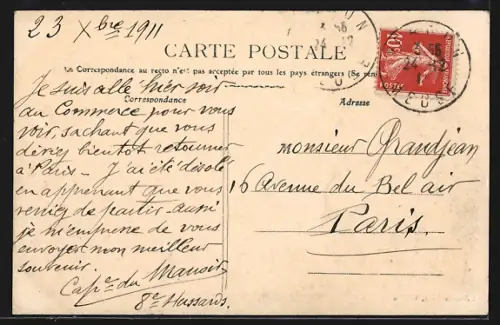 23 Xbre 1911
CARTE POSTALE
La Correspondance au recto n'est pas acceptée par tous les pays étrangers (Se
Correspondance
Adresse
Je suis allé hier soir
au Commerce pour vous
voir, sachant que vous
deviez bientôt retourner
à Paris - J'ai été désolé
en apprenant que vous
veniez de partir aussi
je m'empresse de vous
envoyer mon meilleur
souvenir.
Cape du Manoir
8e Hussards.
Monsieur Grandjean
16 Avenue du Bel air
Paris.
10
POSTES
24 - 12
MEUSE